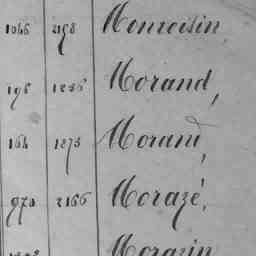 1046 2198 Monvoisin,
196 1236 Morand,
164 1873 Morand,
970 2166 Morazé,
Morazin